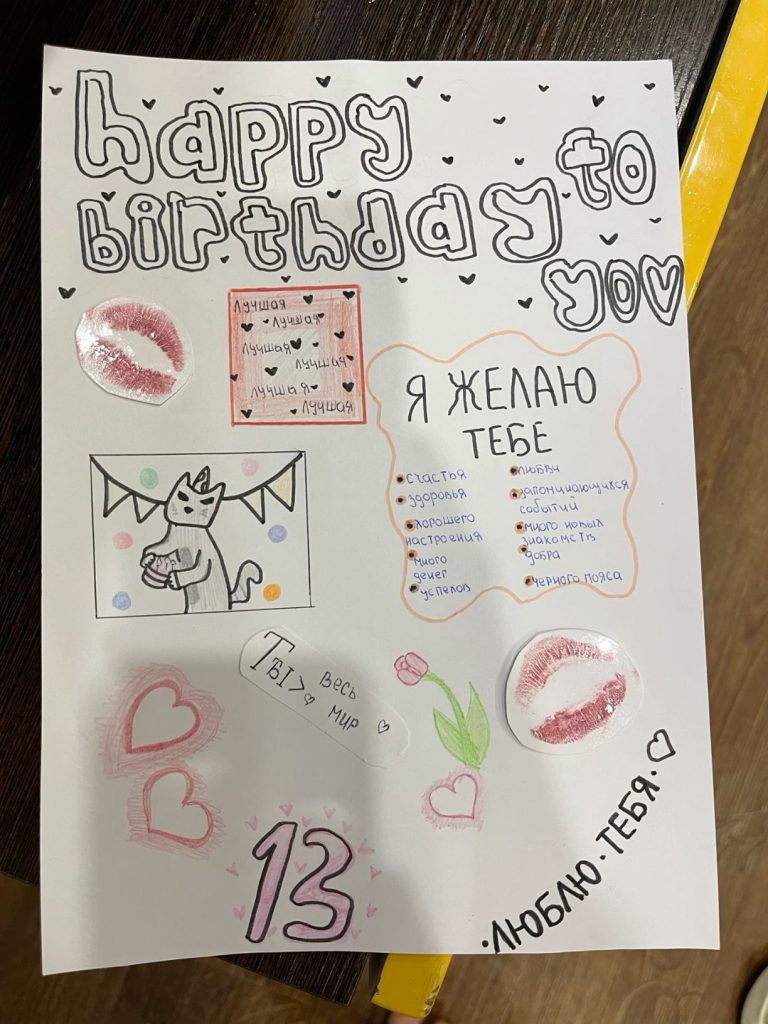 happy
birthday to
you
лучшая
лучшая
лучшая
лучшая
лучшая
лучшая
Я ЖЕЛАЮ
ТЕБЕ
счастья
здоровья
хорошего
настроения
много
денег
успехов
любви
запоминающихся
событий
много новых
знакомств
добра
черного пояса
Ты> весь
мир
13
·ЛЮБЛЮ·ТЕБЯ·